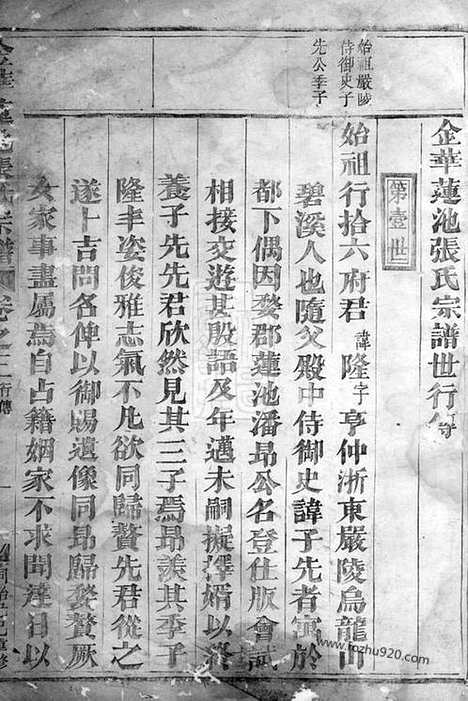 始祖嚴陵
侍御史子
先公季子
金華蓮池張氏宗譜世行傳
第壹世
始祖行拾六府君諱隆字亨仲浙東嚴陵烏龍山
碧溪人也隨父殿中侍御史諱子先者寓於
都下偶因婺郡蓮池潘昂公名登仕版會試
相接交遊甚殷語及年邁未嗣擬擇婿以終
養子先先君欣然見其三子焉昂羡其季子
隆丰姿俊雅志氣不凡欲同歸贅先君從之
遂卜吉問名俾以御賜遺像同昂歸婺贅厥
女家事盡屬焉自占籍姻家不求聞達日以
金華蓮池張氏宗譜 卷之二 行傳
同治己巳重修
www.rozhu920.com